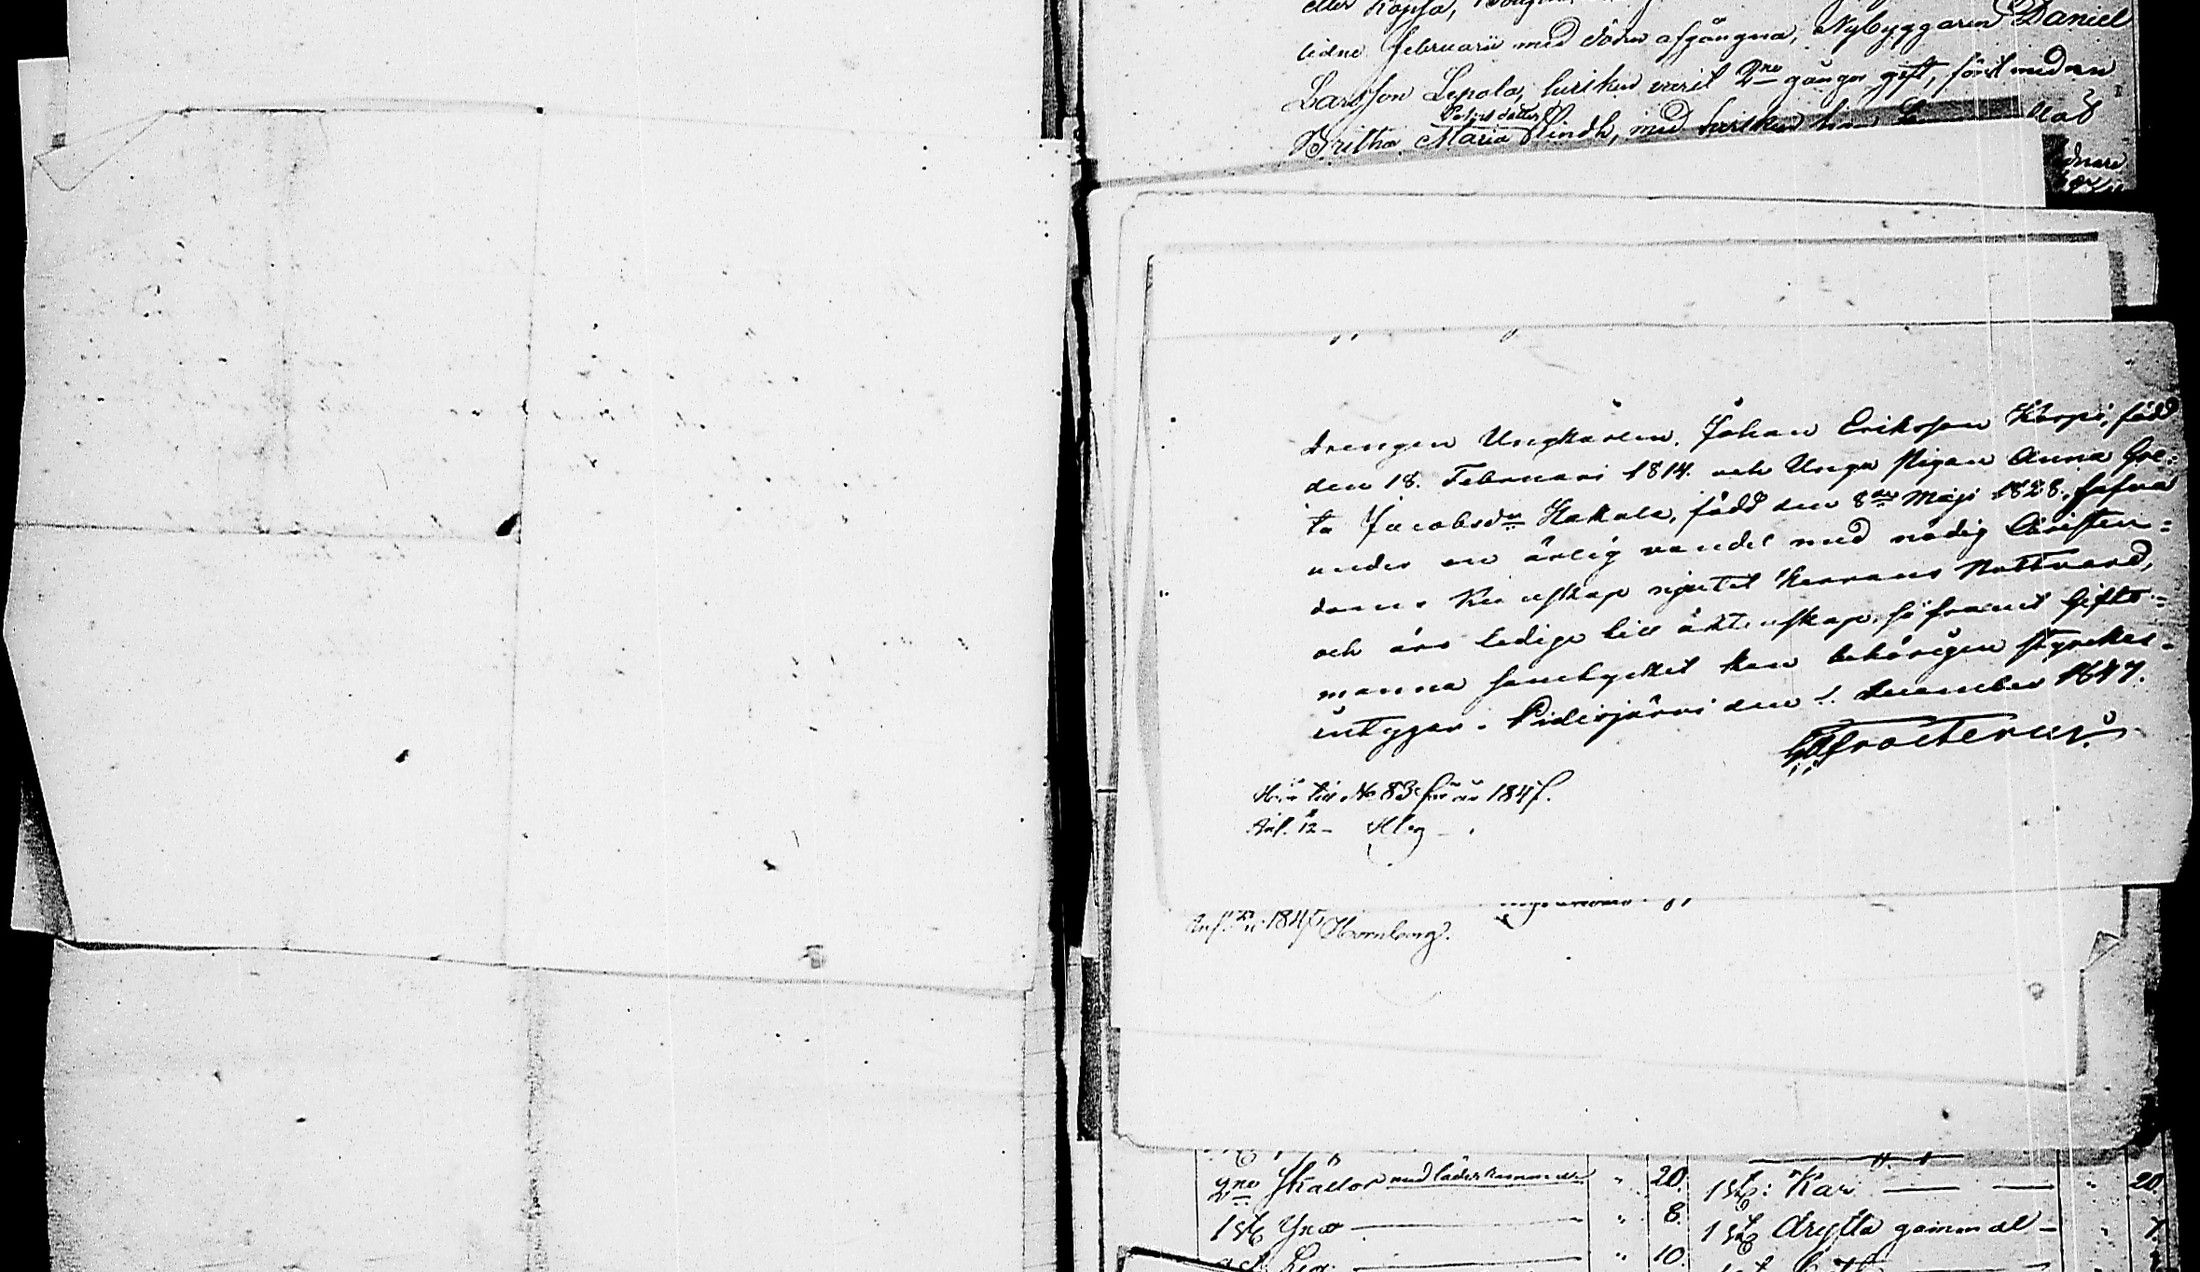 lidne Februarii med döden afgångna, Nybyggaren Daniel
Larsson Lepola, hvilken varit 2ne gånger gift, först med
Petersdotter
Britha Maria Lindh, med hvilken han
drengen Ungkarlen, Johan Eriksson Korpi, född
den 18. Februari 1814. och Unga Pigan Anna Gre=
ta Jacobsdr Hakala, född den 8de Maji 1828, hafva
under en ärlig vandel med nödig Christen=
doms Kunskap njutit Herrans Nattvard,
och äro ledige till äktenskap, så framt Gifto=
manna samtycket kan behörigen styrkas.
intygar. Pidisjärvi den 1. December 1847.
Frosterus
Hör till No 83 för år 1847.
Anf. 12
1847 Hornborg.
2ne Skällor med läderhammor " 20.
1 st. Kar " 20.
1 st. Yxa " 8.
1 st. Drytta gammal " 7.
" 10.